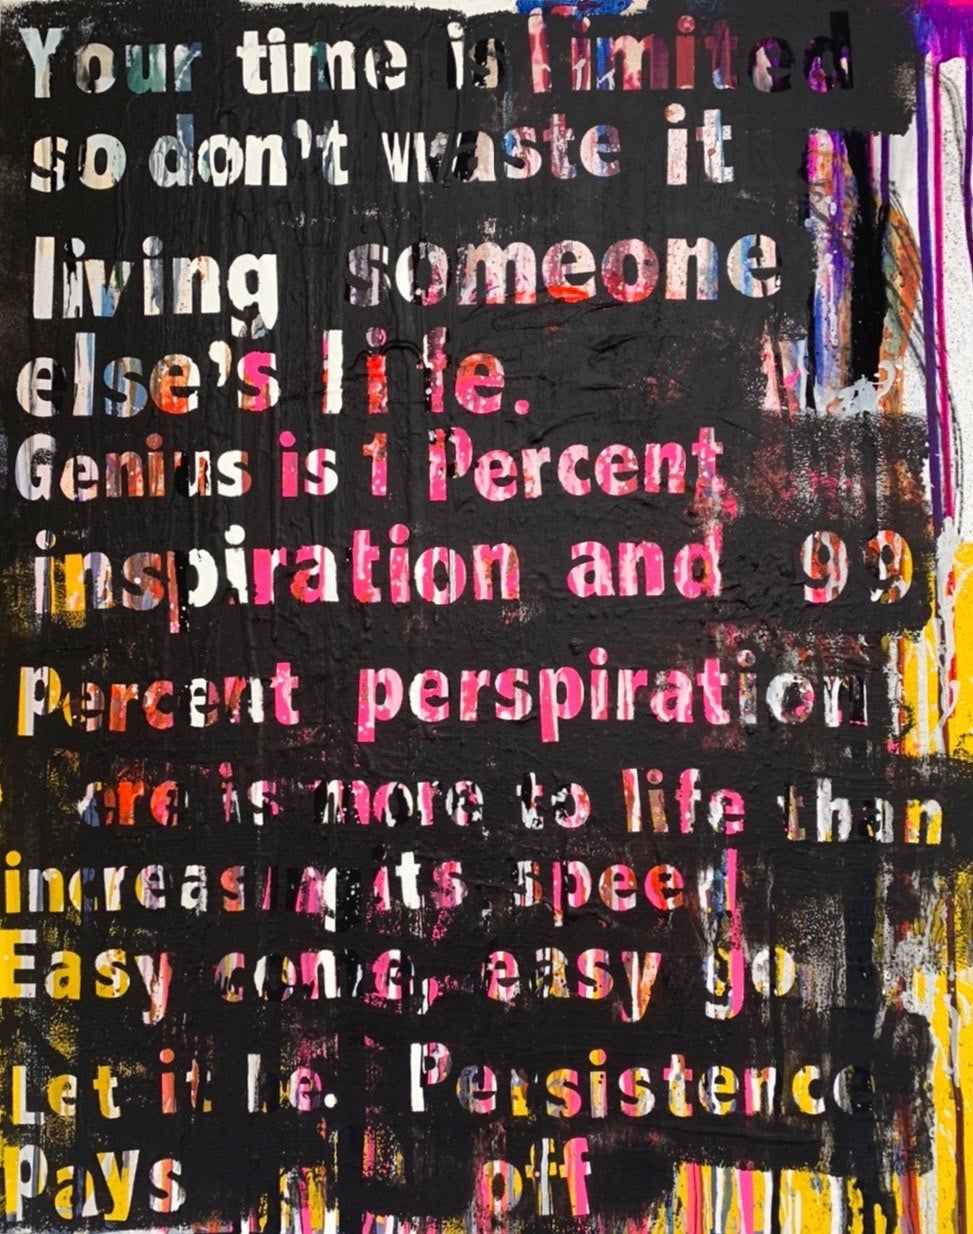 Your time is limited
so don't waste it
living someone
else's life.
Genius is 1 Percent
inspiration and 99
Percent perspiration
ere is more to life than
increasing its speed
Easy come, easy go
Let it be. Persistence
Pays off